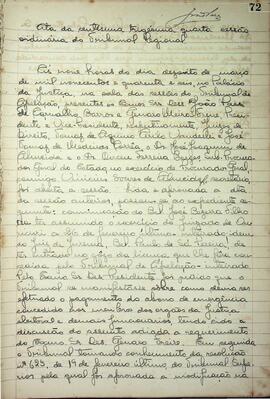 72
Ata da centesima trigesima quarta sessão
ordinária do Tribunal Regional
Às nove horas do dia dezoito de março
de mil novecentos e quarenta e seis, no Palácio
da Justiça, na sala das sessões do Tribunal de
Apelação, presentes os Exmos Srs. Des. João Paes
de Carvalho Barros e Genaro Freire, Presi
dente e Vice-Presidente, respectivamente, Juizes de
Direito, Tomaz de Aquino Cirilo Wanderlei e José
Tomaz de Medeiros Corrêa, o Dr. José Joaquim de
Almeida e o Dr. Ferreira Borges, Sub-Procura
dor Geral do Estado, no exercício de Procurador Geral,
comigo, Secretário,
foi aberta a sessão. Lida e aprovada a ata
da sessão anterior, passou-se ao expediente se
guinte: comunicação do Bel. José Bezerra Filho
de ter assumido o exercício do Juizado de
a 26 de fevereiro último; idem
do Juiz de Bel. Paulo de de
ter entrado no gôzo da licença que lhe foi con
cedida pelo Tribunal de Apelação.
Pelo Exmo Sr. Des. Presidente foi pedido que o
Tribunal se manifestasse sobre como devia ser
efetuado o pagamento do abono de emergência
concedido aos membros dos orgãos da justiça
eleitoral e demais funcionários, tendo sido a
discussão do assunto adiada a requerimento
do Exmo Sr. Des. Genaro Freire. Em seguida
o Tribunal tomando conhecimento da resolução
nº 623, de 19 de fevereiro último, do Tribunal Supe
rior pela qual foi aprovada a modificação na